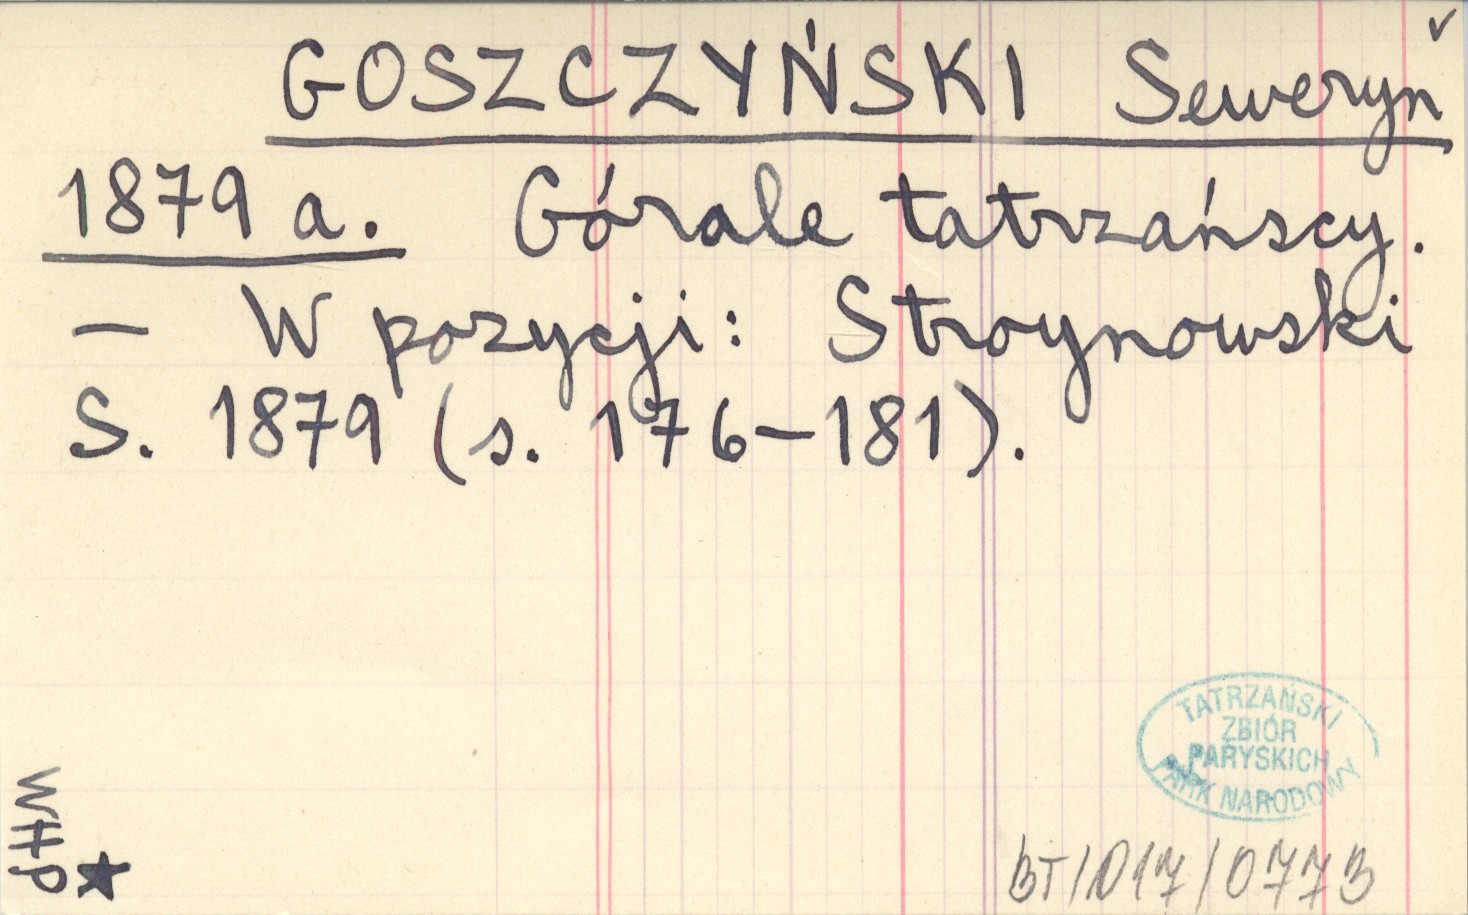 GOSZCZYŃSKI Seweryn
1879 a. Górale tatrzańscy.
— W pozycji: Stroynowski
S. 1879 (s. 176—181).
TATRZAŃSKI
ZBIÓR
PARYSKICH
PARK NARODOWY
WHP
BT/017/0773